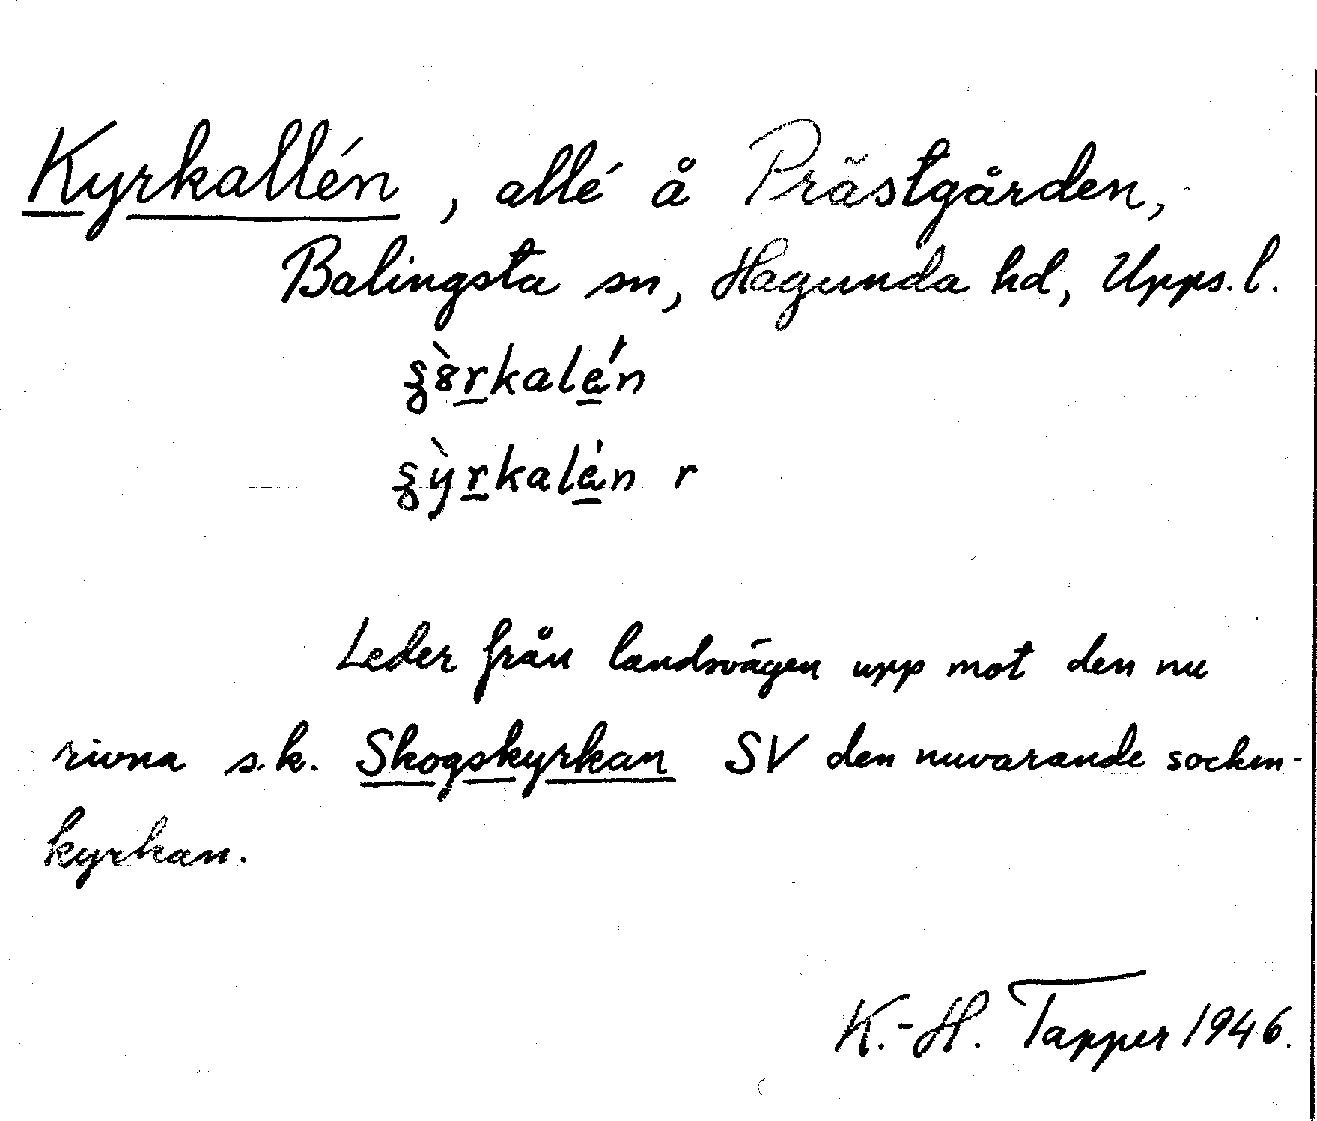 Kyrkallén, allé å Prästgården,
Balingsta sn, Hagunda hd, Upps.l.
kalén
kalén r
Leder från landsvägen upp mot den nu
rivna s.k. Skogskyrkan SV den nuvarande socken-
kyrkan.
K.-H. Tapper 1946.